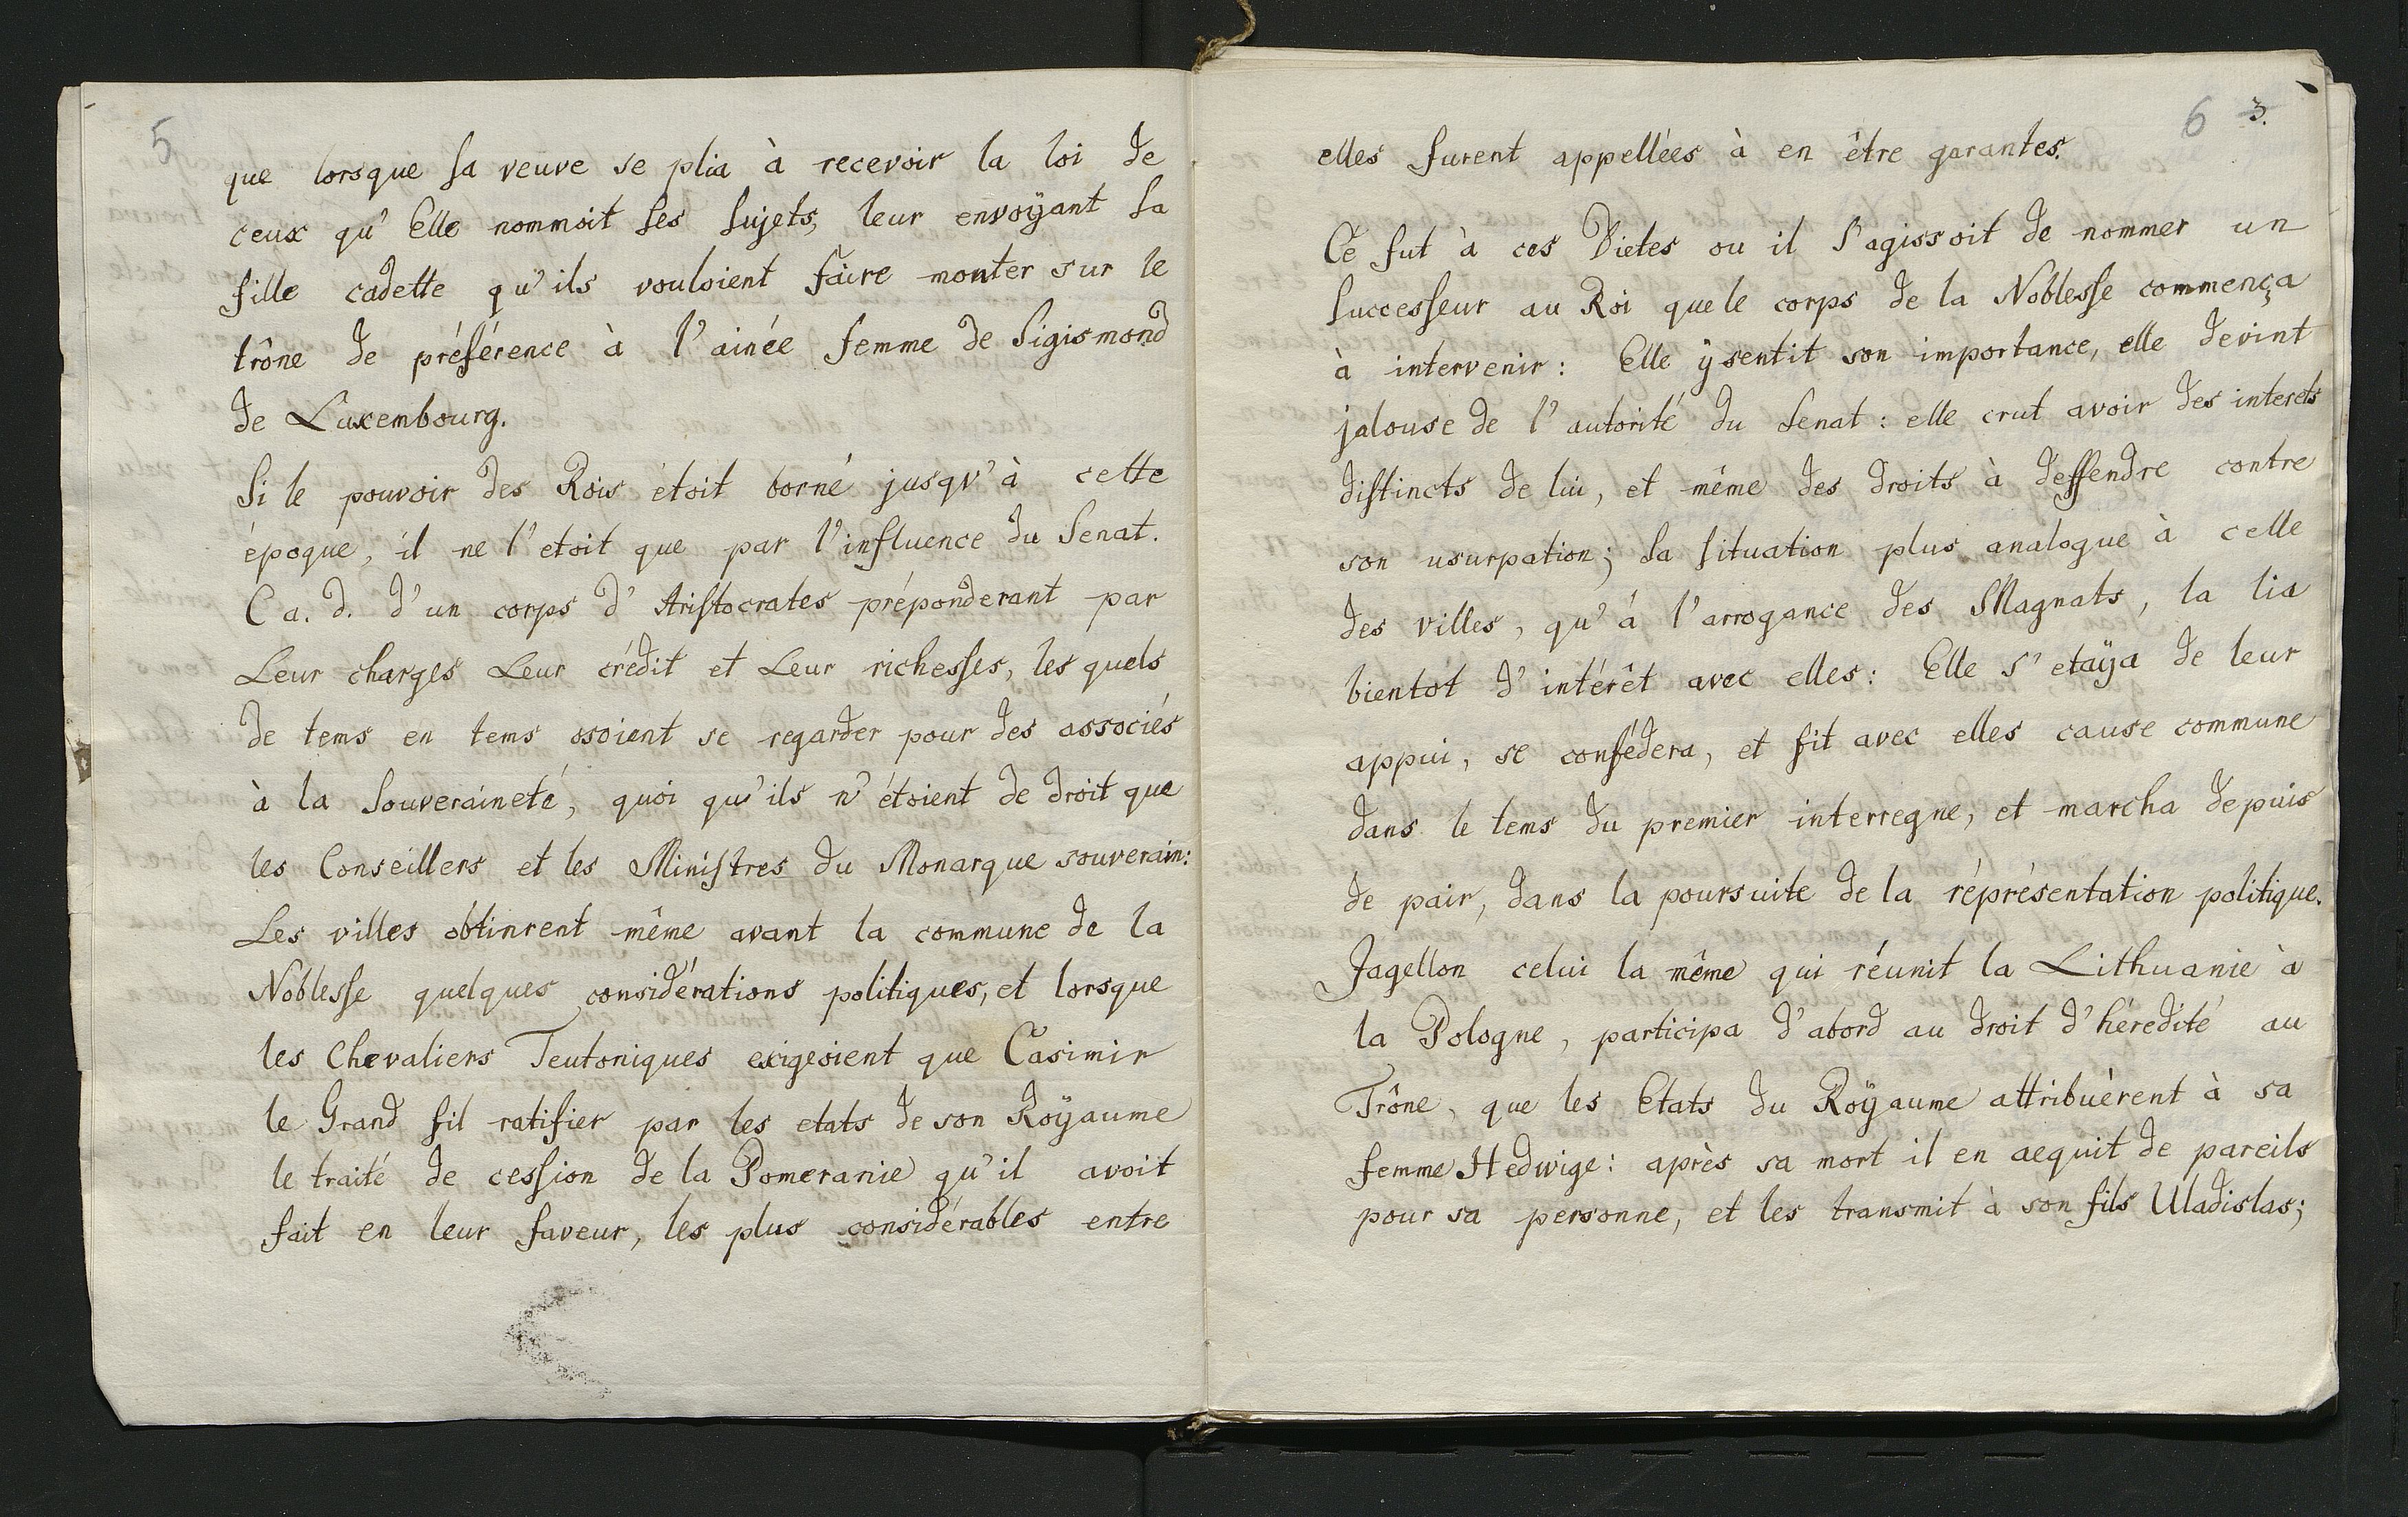 5
que lorsque sa veuve se plia à recevoir la loi de
ceux qu'Elle nommoit ses sujets, leur envoÿant sa
fille cadette qu'ils vouloient faire monter sur le
trône de préférence à l'ainée femme de Sigismond
de Luxembourg.
Si le pouvoir des Rois étoit borné jusqu'à cette
époque, il ne l'etoit que par l'influence du Senat.
C a. d. d'un corps d'Aristocrates préponderant par
Leur charges Leur crédit et Leur richesses, les quels
de tems en tems osoient se regarder pour des associés
à la Souveraineté, quoi qu'ils n'étoient de droit que
les Conseillers et les Ministres du Monarque souverain:
Les villes obtinrent même avant la commune de la
Noblesse quelques considérations politiques, et lorsque
les Chevaliers Teutoniques exigeoient que Casimir
le Grand fit ratifier par les etats de son Roÿaume
le traité de cession de la Pomeranie qu'il avoit
fait en leur faveur, les plus considérables entre
6 3.
elles furent appellées à en être garantes.
Ce fut à ces Dietes ou il s'agissoit de nommer un
Successeur au Roi que le corps de la Noblesse commença
à intervenir: Elle ÿ sentit son importance, elle devint
jalouse de l'autorité du Senat: elle crut avoir des interets
distincts de lui, et même des droits à deffendre contre
son usurpation; sa situation plus analogue à celle
des villes, qu'à l'arrogance des Magnats, la lia
bientot d'intérêt avec elles: Elle s'etaÿa de leur
appui, se confédera, et fit avec elles cause commune
dans le tems du premier interregne, et marcha depuis
de pair, dans la poursuite de la réprésentation politique.
Jagellon celui la même qui réunit la Lithuanie à
la Pologne, participa d'abord au droit d'héredité au
Trône, que les Etats du Roÿaume attribuèrent à sa
femme Hedwige: après sa mort il en aequit de pareils
pour sa personne, et les transmit à son fils Uladislas;